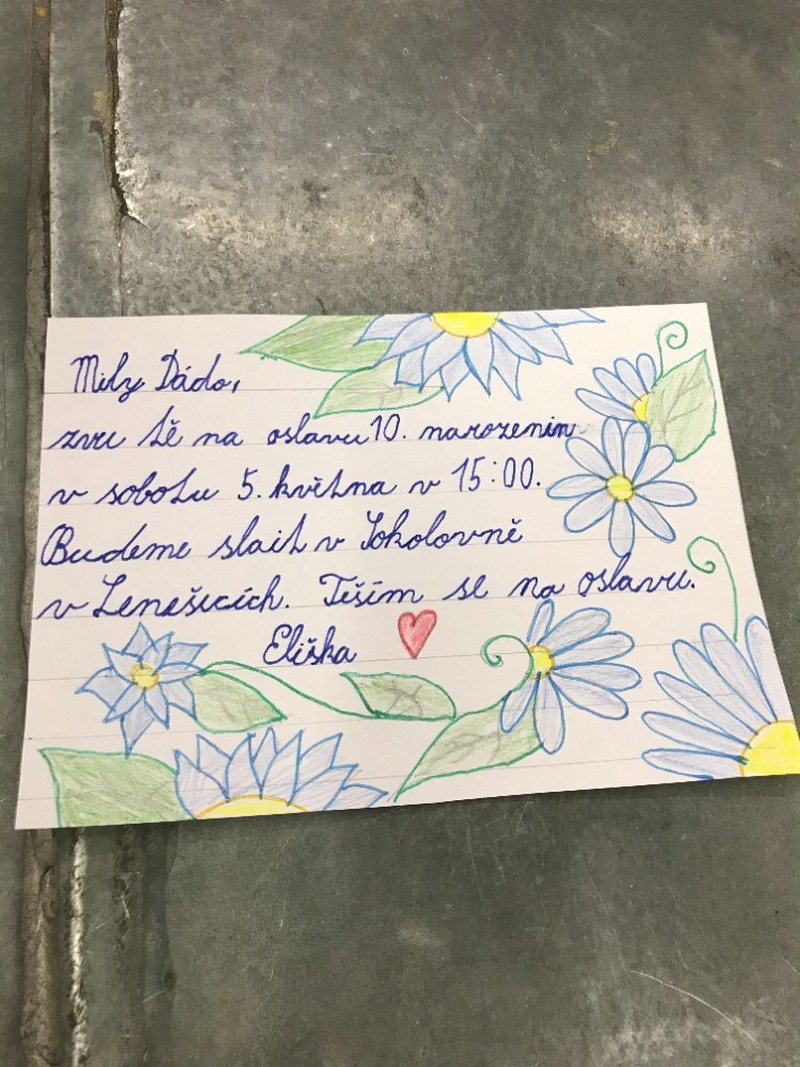 Milý Dádo,
zvu tě na oslavu 10. narozenin
v sobotu 5. května v 15:00.
Budeme slavit v Sokolovně
v Lenešicích. Těším se na oslavu.
Eliška